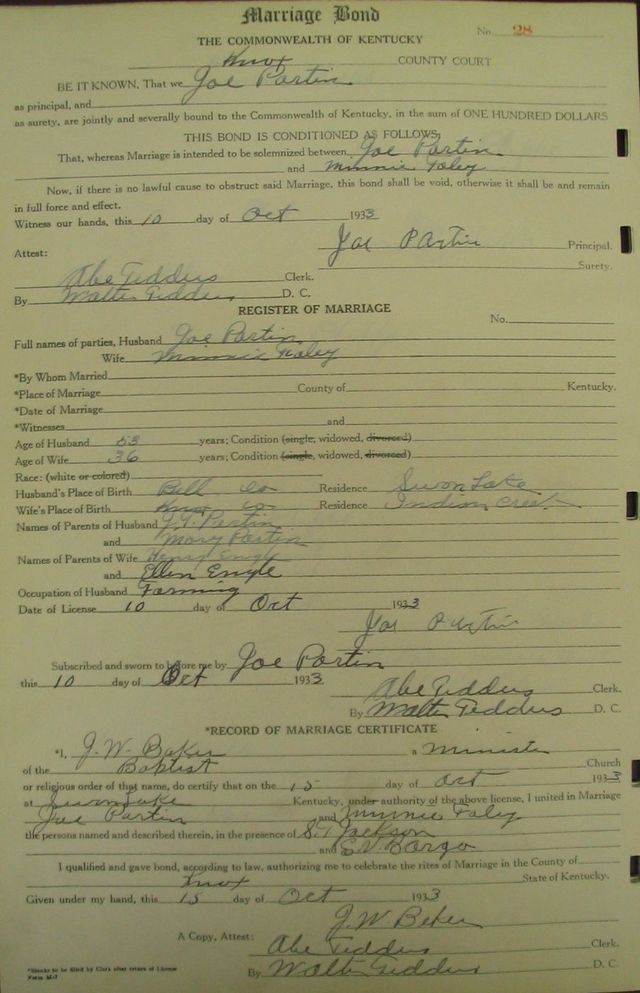 Marriage Bond
No. 28
THE COMMONWEALTH OF KENTUCKY
Knox COUNTY COURT
BE IT KNOWN, That we Joe Partin
as principal, and
as surety, are jointly and severally bound to the Commonwealth of Kentucky, in the sum of ONE HUNDRED DOLLARS
THIS BOND IS CONDITIONED AS FOLLOWS,
That, whereas Marriage is intended to be solemnized between Joe Partin
and Minnie Foley
Now, if there is no lawful cause to obstruct said Marriage, this bond shall be void, otherwise it shall be and remain
in full force and effect.
Witness our hands, this 10 day of Oct 1933
Joe Partin Principal.
Attest: Surety.
Abe Geddes Clerk.
By Walter Geddes D. C.
REGISTER OF MARRIAGE
No.
Full names of parties, Husband Joe Partin
Wife Minnie Foley
*By Whom Married
*Place of Marriage County of Kentucky.
*Date of Marriage
*Witnesses and
Age of Husband 53 years; Condition (single, widowed, divorced)
Age of Wife 36 years; Condition (single, widowed, divorced)
Race: (white or colored)
Husband's Place of Birth Bell Co Residence Swon Lake
Wife's Place of Birth Knox Co Residence Indian Creek
Names of Parents of Husband J.T. Partin
and Mary Partin
Names of Parents of Wife Henry Engle
and Ellen Engle
Occupation of Husband Farming
Date of License 10 day of Oct 1933
Joe Partin
Subscribed and sworn to before me by Joe Partin
this 10 day of Oct 1933
Abe Geddes Clerk.
By Walter Geddes D. C.
*RECORD OF MARRIAGE CERTIFICATE
*I, J. W. Baker a Minister
of the Baptist Church
or religious order of that name, do certify that on the 15 day of Oct 1933
at Swon Lake Kentucky, under authority of the above license, I united in Marriage
Joe Partin and Minnie Foley
the persons named and described therein, in the presence of S.T. Jackson
and E.V. Bargo
I qualified and gave bond, according to law, authorizing me to celebrate the rites of Marriage in the County of
Knox State of Kentucky.
Given under my hand, this 15 day of Oct 1933
J. W. Beker
A Copy, Attest: Abe Geddes Clerk.
By Walter Geddes D. C.
*Blanks to be filled by Clerk after return of License
Form M-7